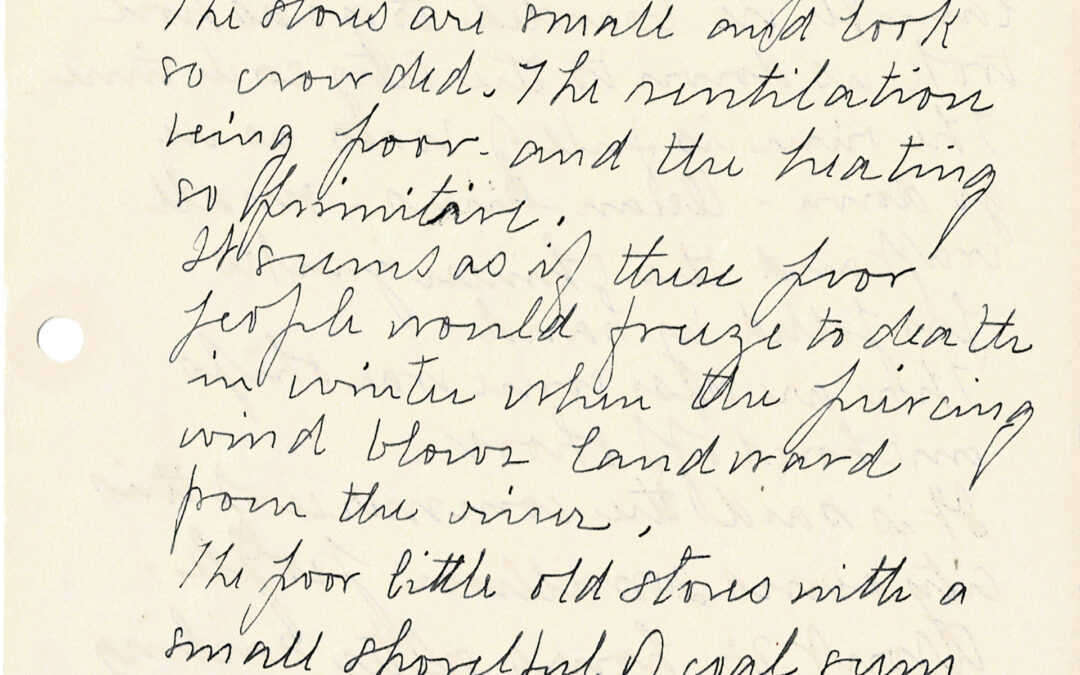 The stores are small and look
so crowded. The ventilation
being poor - and the heating
so primitive.
It seems as if these poor
people would freeze to death
in winter when the piercing
wind blows landward
from the river,
The poor little old stoves with a
small shovelful of coal seem